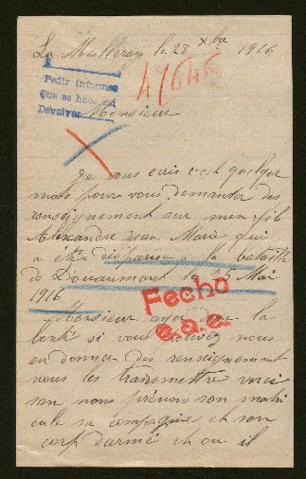 La le 28 Xbre 1916
47646
Pedir informes
Que se
Devolver
Monsieur
Je vous ecris c'est quelque
mots pour vous demander des
renseignement sur mon fils
Alexandre Jean Marie qui
a été disparue a la bataille
de Douaumont le 25 Mai
1916
Fecho
e.a.e.
Monsieur ayez donc la
bonté si vous trouvez nous
en donner des renseignement
nous les transmettre voici
son nous prénom son matri
cule sa compagnie et son
corp d'armé et ou il